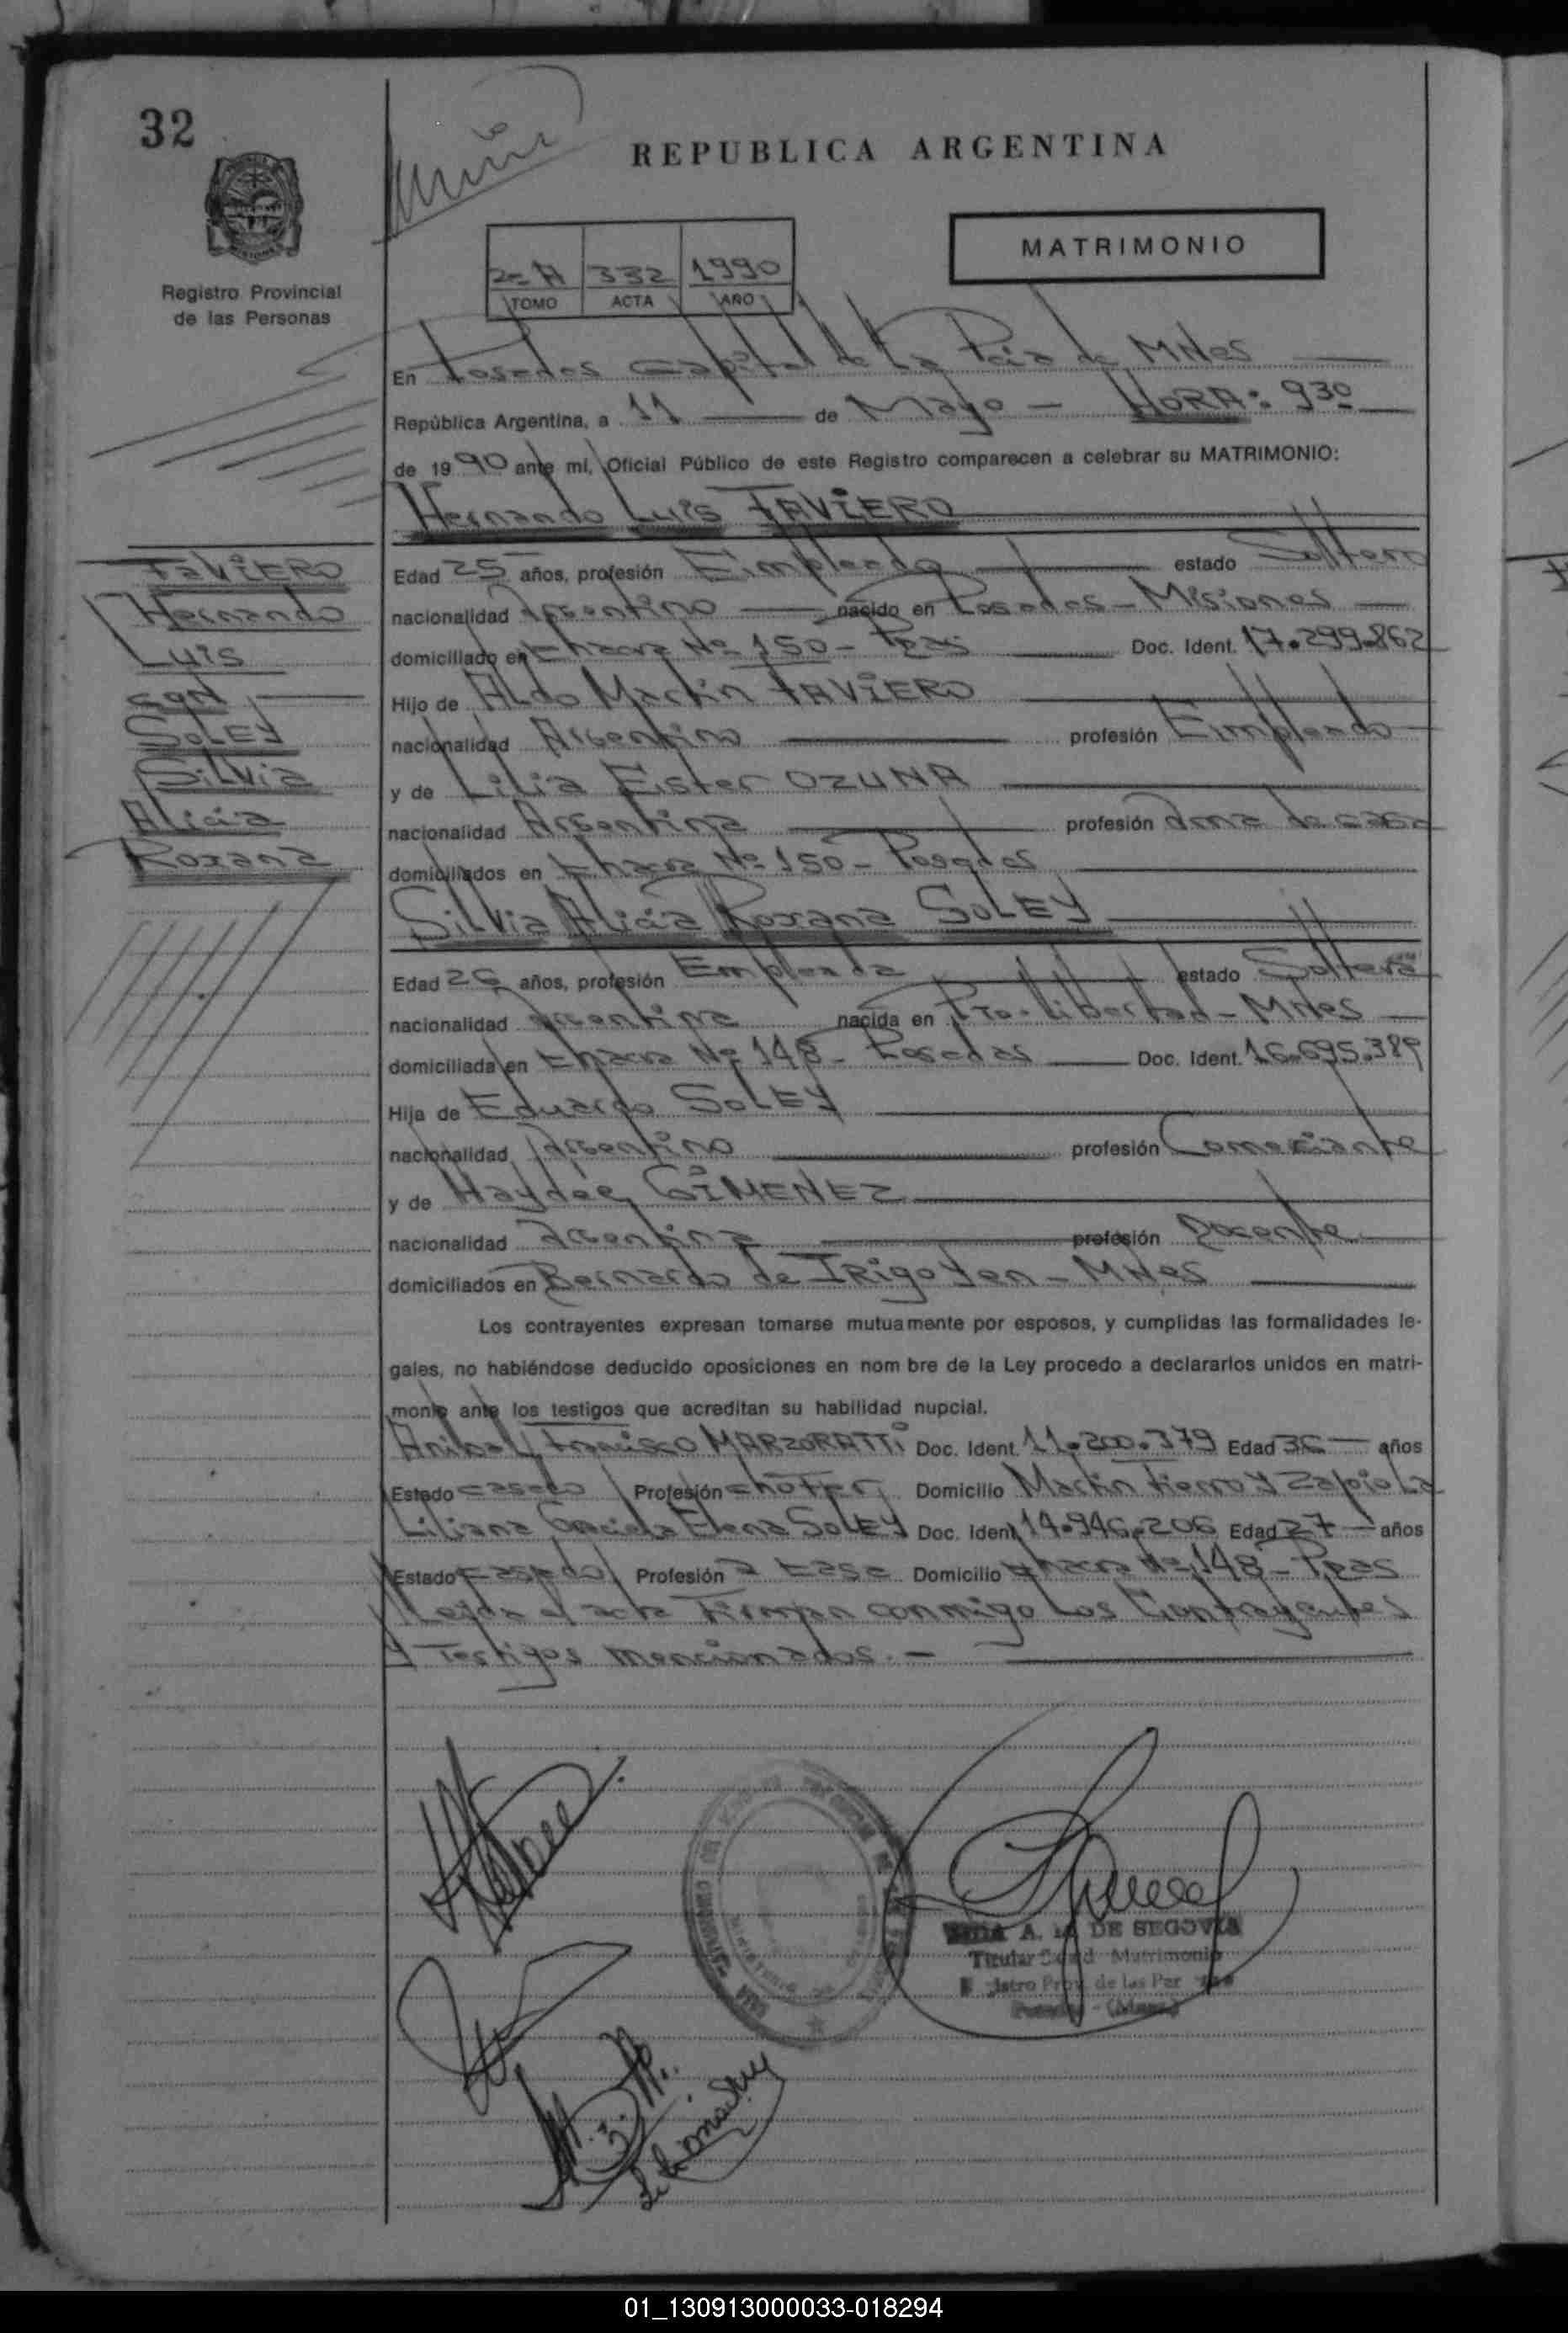 32
REPUBLICA ARGENTINA
MATRIMONIO
Registro Provincial
de las Personas
2º A 332 1990
TOMO ACTA AÑO
En Posadas Capital de La Pcia de MNes
República Argentina, a 11 de Mayo - HORA: 930
de 1990 ante mí, Oficial Público de este Registro comparecen a celebrar su MATRIMONIO:
Hernando Luis FAViERO
FaViERO
Hernando
Luis
con
SoLEY
SiLVia
Alicia
Roxana
Edad 25 años, profesión Empleado estado Soltero
nacionalidad Argentino nacido en Posadas - Misiones
domiciliado en Chacra Nº 150 - Pdas Doc. Ident. 17.299.862
Hijo de Aldo Martin FAViERO
nacionalidad Argentino profesión Empleado
y de Lilia Ester OZUNA
nacionalidad Argentina profesión ama de casa
domiciliados en Chacra Nº 150 - Posadas
SiLVia Alicia Roxana SoLEY
Edad 26 años, profesión Empleada estado Soltera
nacionalidad Argentina nacida en Pto. Libertad - MNes
domiciliada en Chacra Nº 148 - Posadas Doc. Ident. 16.695.389
Hija de Eduardo SoLEY
nacionalidad Argentino profesión Comerciante
y de Haydeé GiMENEZ
nacionalidad Argentina profesión Docente
domiciliados en Bernardo de IRigoYen - MNes
Los contrayentes expresan tomarse mutuamente por esposos, y cumplidas las formalidades le-
gales, no habiéndose deducido oposiciones en nom bre de la Ley procedo a declararlos unidos en matri-
monio ante los testigos que acreditan su habilidad nupcial.
Anibal Francisco MARZORATTi Doc. Ident. 11.200.379 Edad 36 años
Estado casado Profesión choFer Domicilio Martin Fierro y Zapiola
Liliana Graciela Elena SoLEY Doc. Ident. 14.946.206 Edad 27 años
Estado casado Profesión a casa Domicilio Chacra Nº 148 - Pdas
Leida el acta Firman conmigo Los Contrayentes
y Testigos mencionados. -
A. DE SEGOVIA
Titular Matrimonio
Prov. de las Per
01_130913000033-018294